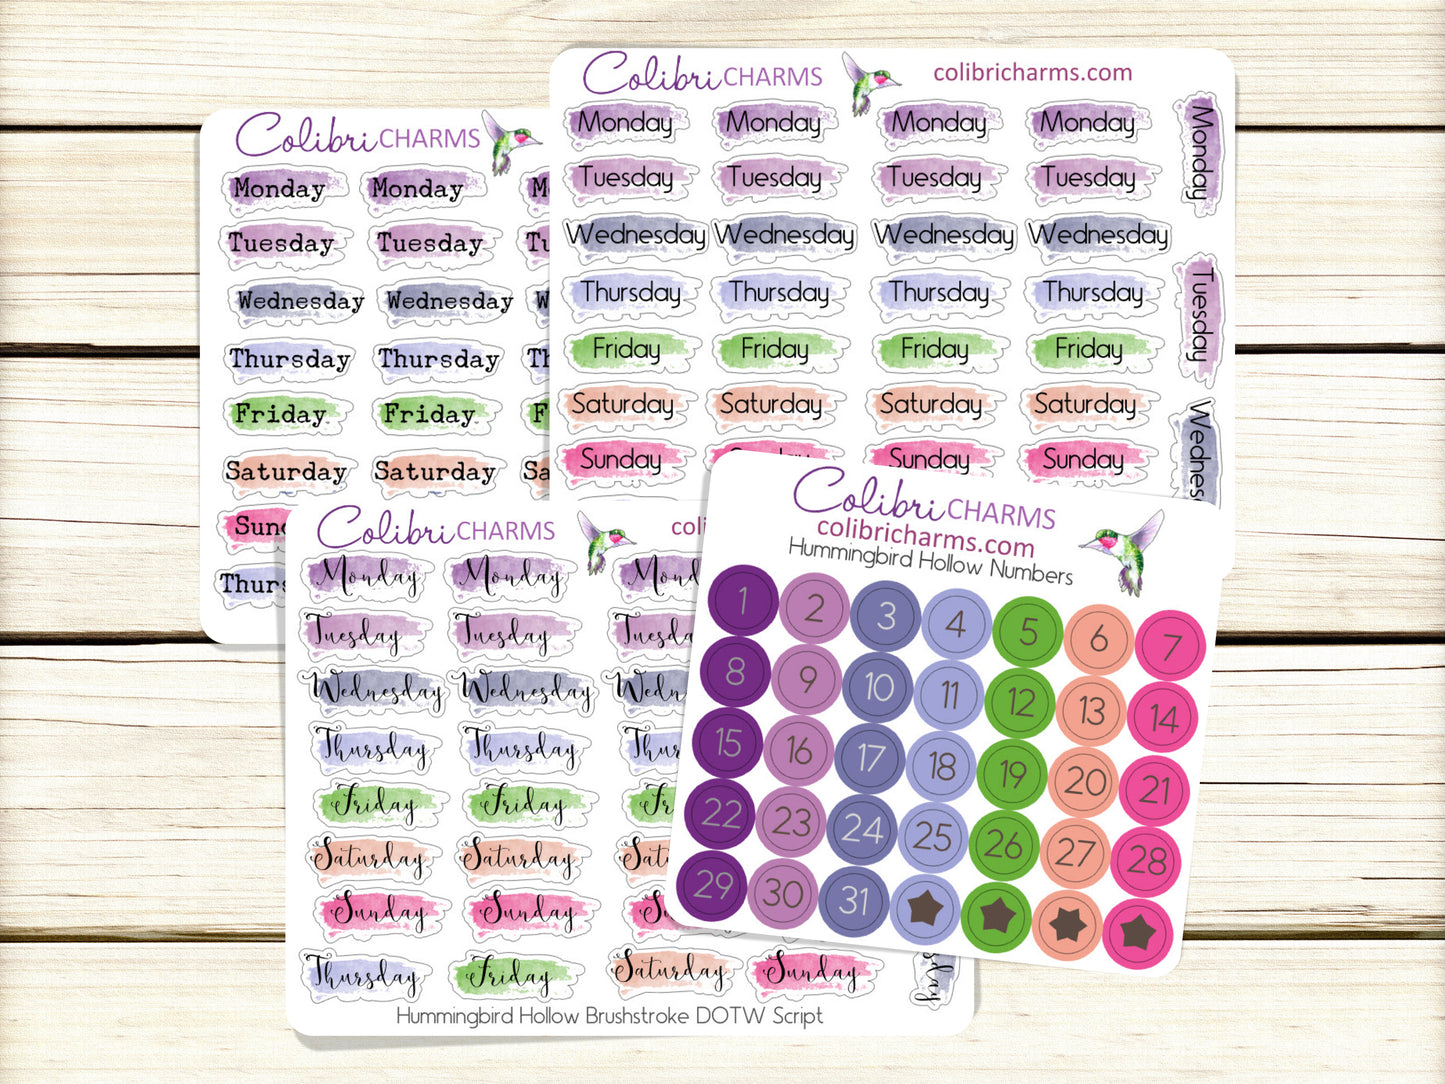 Colibri CHARMS
Monday Monday M
Tuesday Tuesday Tu
Wednesday Wednesday W
Thursday Thursday Th
Friday Friday F
Saturday Saturday Sa
Sun
Thurs
Colibri CHARMS colibricharms.com
Monday Monday Monday Monday
Tuesday Tuesday Tuesday Tuesday
Wednesday Wednesday Wednesday Wednesday
Thursday Thursday Thursday Thursday
Friday Friday Friday Friday
Saturday Saturday Saturday Saturday
Sunday Sunday Sunday Sunday
Monday
Tuesday
Wednes
Colibri CHARMS coli
Monday Monday Mond
Tuesday Tuesday Tuesda
Wednesday Wednesday Wedn
Thursday Thursday Thur
Friday Friday Fr
Saturday Saturday Sat
Sunday Sunday S
Thursday Friday Saturday Sunday
sday
Hummingbird Hollow Brushstroke DOTW Script
Colibri CHARMS
colibricharms.com
Hummingbird Hollow Numbers
1 2 3 4 5 6 7
8 9 10 11 12 13 14
15 16 17 18 19 20 21
22 23 24 25 26 27 28
29 30 31